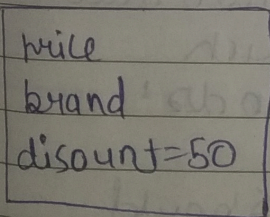 price
brand
disount=50